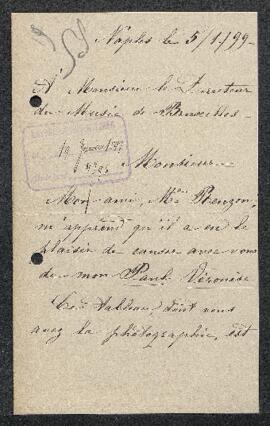 Naples le 5/1/99-
A Monsieur le Directeur
du Musée de Bruxelles-
Monsieur-
Mon ami, Mr
m'apprend qu'il a eu le
plaisir de causer avec vous
de mon Paul Véronèse
tableau, dont vous
avez la photographie, est